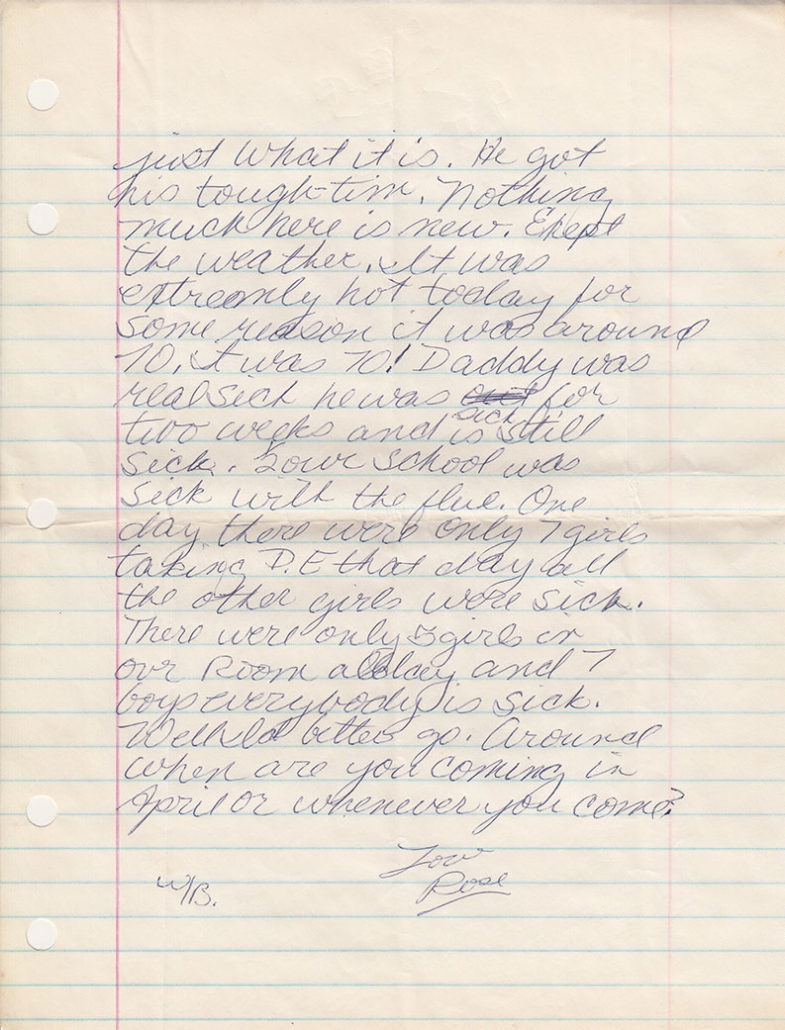 just what it is. He got
his tough-tim. Nothing
much here is new. Exept
the weather. It was
extreamly hot today for
some reason it was around
70. It was 70! Daddy was
real sick he was out sick for
two weeks and is still
sick. our school was
sick with the flue. One
day there were only 7 girls
taking P.E that day all
the other girls were sick.
There were only 5 girls in
our Room all day and 7
boys everybody is sick.
Well Id better go. Around
when are you coming in
April or whenever you come?
Love
Rose
W/B.